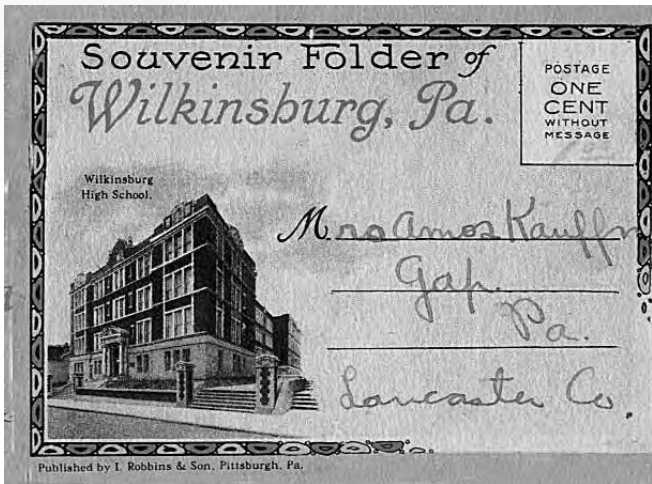 Souvenir Folder of
Wilkinsburg, Pa.
POSTAGE
ONE
CENT
WITHOUT
MESSAGE
Wilkinsburg
High School.
Mrs Amos Kauffm
Gap.
Pa.
Lancaster Co.
Published by I. Robbins & Son, Pittsburgh, Pa.